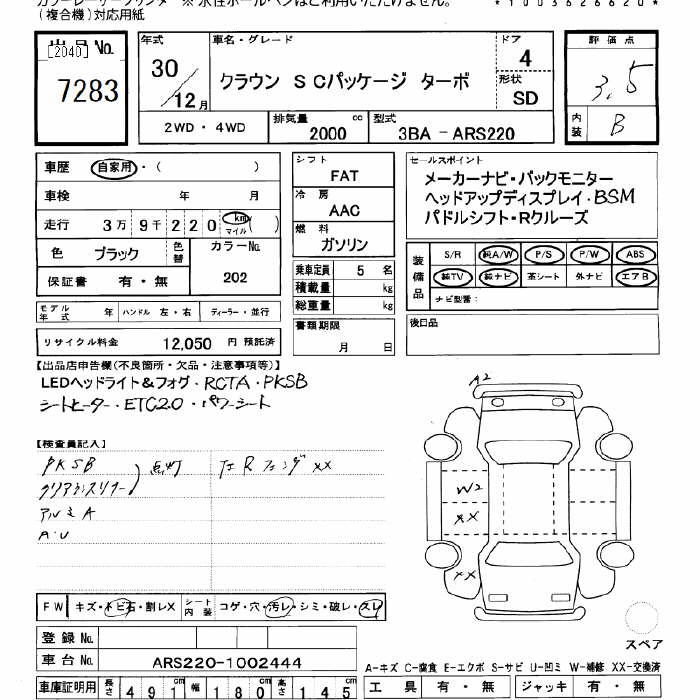 (複合機)対応用紙
出品 No.
[2040]
7283
年式 車名・グレード ドア 評価点
30/12月 クラウン SCパッケージ ターボ 4 3.5
形状 SD
2WD・4WD 排気量 2000 cc 型式 3BA-ARS220 内装 B
車歴 自家用・( )
車検 年 月
走行 3万9千220 km マイル ( )
色 ブラック 色替 カラーNo. 202
保証書 有・無
モデル年式 年 ハンドル 左・右 ディーラー・並行
リサイクル料金 12,050 円 預託済
シフト FAT
冷房 AAC
燃料 ガソリン
乗車定員 5 名
積載量 kg
総重量 kg
書類期限 月 日
セールスポイント
メーカーナビ・バックモニター
ヘッドアップディスプレイ・BSM
パドルシフト・Rクルーズ
装備品 S/R 純A/W P/S P/W ABS
純TV 純ナビ 革シート 外ナビ エアB
ナビ型番:
後日品
【出品店申告欄(不良箇所・欠品・注意事項等)】
LEDヘッドライト&フォグ・RCTA・PKSB
シートヒーター・ETC2.0・パワーシート
【検査員記入】
PKSB
クリアランスソナー 点灯 左Rフェンダ XX
アルミA
A・U
A2
W2
XX
XX
スペア
FW キズ・トビ石・割レX シート内装 コゲ・穴・汚レ・シミ・破レ・スレ
登録 No.
車台 No. ARS220-1002444
車庫証明用 長さ 491cm 幅 180cm 高さ 145cm
A-キズ C-腐食 E-エクボ S-サビ U-凹ミ W-補修 XX-交換済
工具 有・無 ジャッキ 有・無